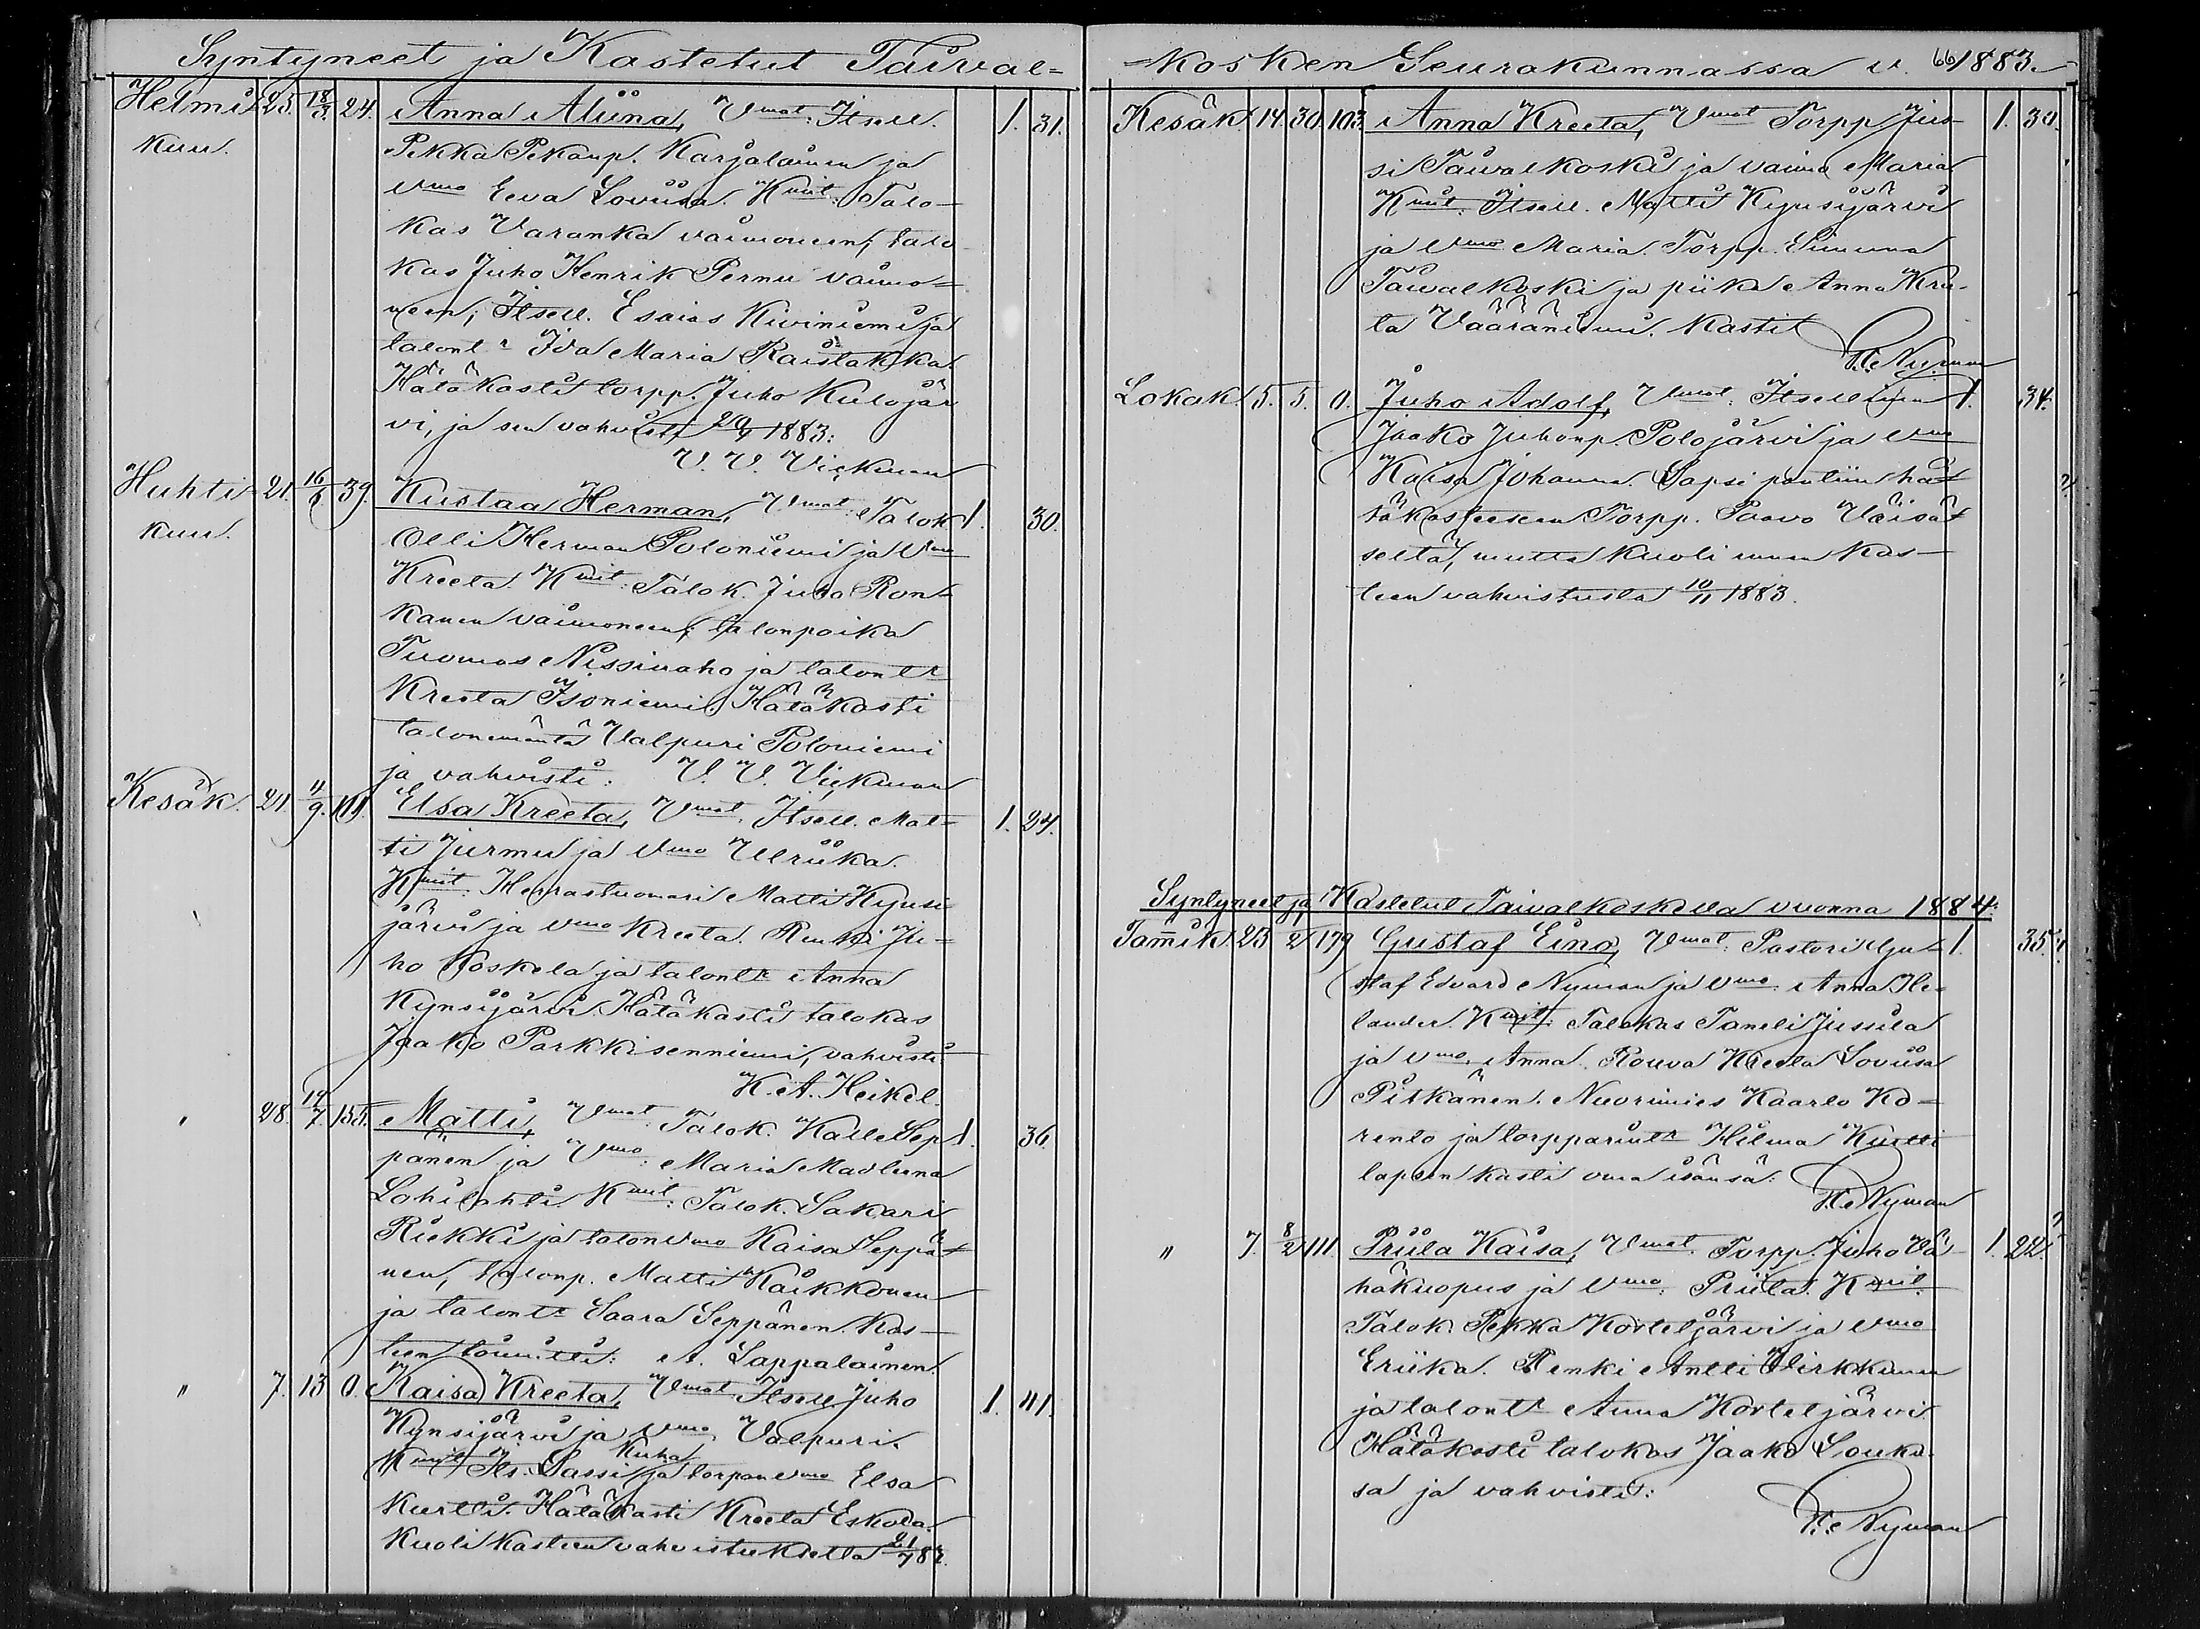 Syntyneet ja Kastetut Taival-
Helmi 25. 18/3. 24. Anna Aliina, Vmat: Itsell. 1. 31.
kuu. Pekka Pekanp. Karjalainen ja
vmo Eeva Loviisa. Kmit: Talo-
kas Varanka vaimoneen, talo-
kas Juho Henrik Pernu vaimo-
neen; Itsell. Esaias Kiviniemi ja
talontr Ida Maria Raistakka.
Hätäkasti torpp. Juho Kulojär
vi, ja sen vahvisti 29/4 1883:
V. V. Vickman
Huhti- 21. 16/6. 39. Kustaa Herman, Vmat: Talok 1. 30.
kuu. Olli Herman Poloniemi ja Vmo
Kreeta. Kmit: Talok. Juho Ron-
kanen vaimoneen; talonpoika
Tuomas Nissinaho ja talontr
Kreeta Isoniemi. Hätäkasti
talonemäntä Valpuri Poloniemi
ja vahvisti: V. V. Vickman
Kesäk. 21. 11/9. 101. Elsa Kreeta, Vmat. Itsell. Mat- 1. 24.
ti Jurmu ja vmo Ulriika.
Kmit. Herrastuomari Matti Kynsi-
järvi ja vmo Kreeta. Renki Ju-
ho Koskela ja talontr Anna
Kynsijärvi. Hätäkasti talokas
Jaako Parkkisenniemi, vahvisti
K. A. Heikel.
" 28. 12/7. 155. Matti, Vmat. Talok. Kalle Sep- 1. 36.
pänen ja Vmo: Maria Madleena
Lohilahti. Kmit: Talok. Sakari
Riekki ja talonvmo Kaisa Seppä-
nen, talonp. Matti Käikkönen
ja talontr Saara Seppänen. Kas-
teen toimitti: A. Lappalainen.
" 7. 13 0. Kaisa Kreeta, Vmat Itsell Juho 1. 41.
Kynsijärvi ja vmo Valpuri.
Kmit Its. Lassi Kuha ja torpanvmo Elsa
Kurtti. Hätäkasti Kreeta Eskola.
Kuoli kasteen vahvistuksetta 21/7 83.
-kosken Seurakunnassa v. 66 1883.
Kesäk. 14 30 103. Anna Kreeta, Vmat Torpp Jus- 1. 30.
si Taivalkoski ja vaimo Maria.
Kmit. Itsell. Matti Kynsijärvi
ja vmo Maria. Torpp. Simuna
Taivalkoski ja piika Anna Kree-
ta Vääräniemi. Kasti
G. E. Nyman
Lokak. 5. 5. 0. Juho Adolf, Vmat: Itsellinen 1. 34.
Jaako Juhonp. Polojärvi ja vmo
Kaisa Johanna. Lapsi pantiin hä-
täkasteeseen Torpp. Paavo Väisä-
seltä, mutta kuoli ennen kas-
teen vahvistusta 10/11 1883.
Syntyneet ja Kastetut Taivalkoskella vuonna 1884.
Tammik. 25 2 179 Gustaf Eino, Vmat: Pastori Gu- 1. 35.
staf Edvard Nyman ja vmo: Anna He-
lander. Kmit: Talokas Taneli Jussila
ja vmo Anna. Rouva Kreeta Loviisa
Pitkänen. Nuorimies Kaarlo Ko-
rento ja torpparintr Hilma Kurtti
lapsen kasti oma isänsä:
G. E. Nyman
" 7. 8/2 111. Priita Kaisa, Vmat. Torpp. Juho Vä- 1. 22.
häkuopus ja vmo: Priita. Kmit.
Talok. Pekka Korteljärvi ja vmo
Eriika. Renki Antti Virkkunen
ja talontr Anna Korteljärvi
Hätäkasti talokas Jaako Louku-
sa ja vahvisti:
G. E. Nyman